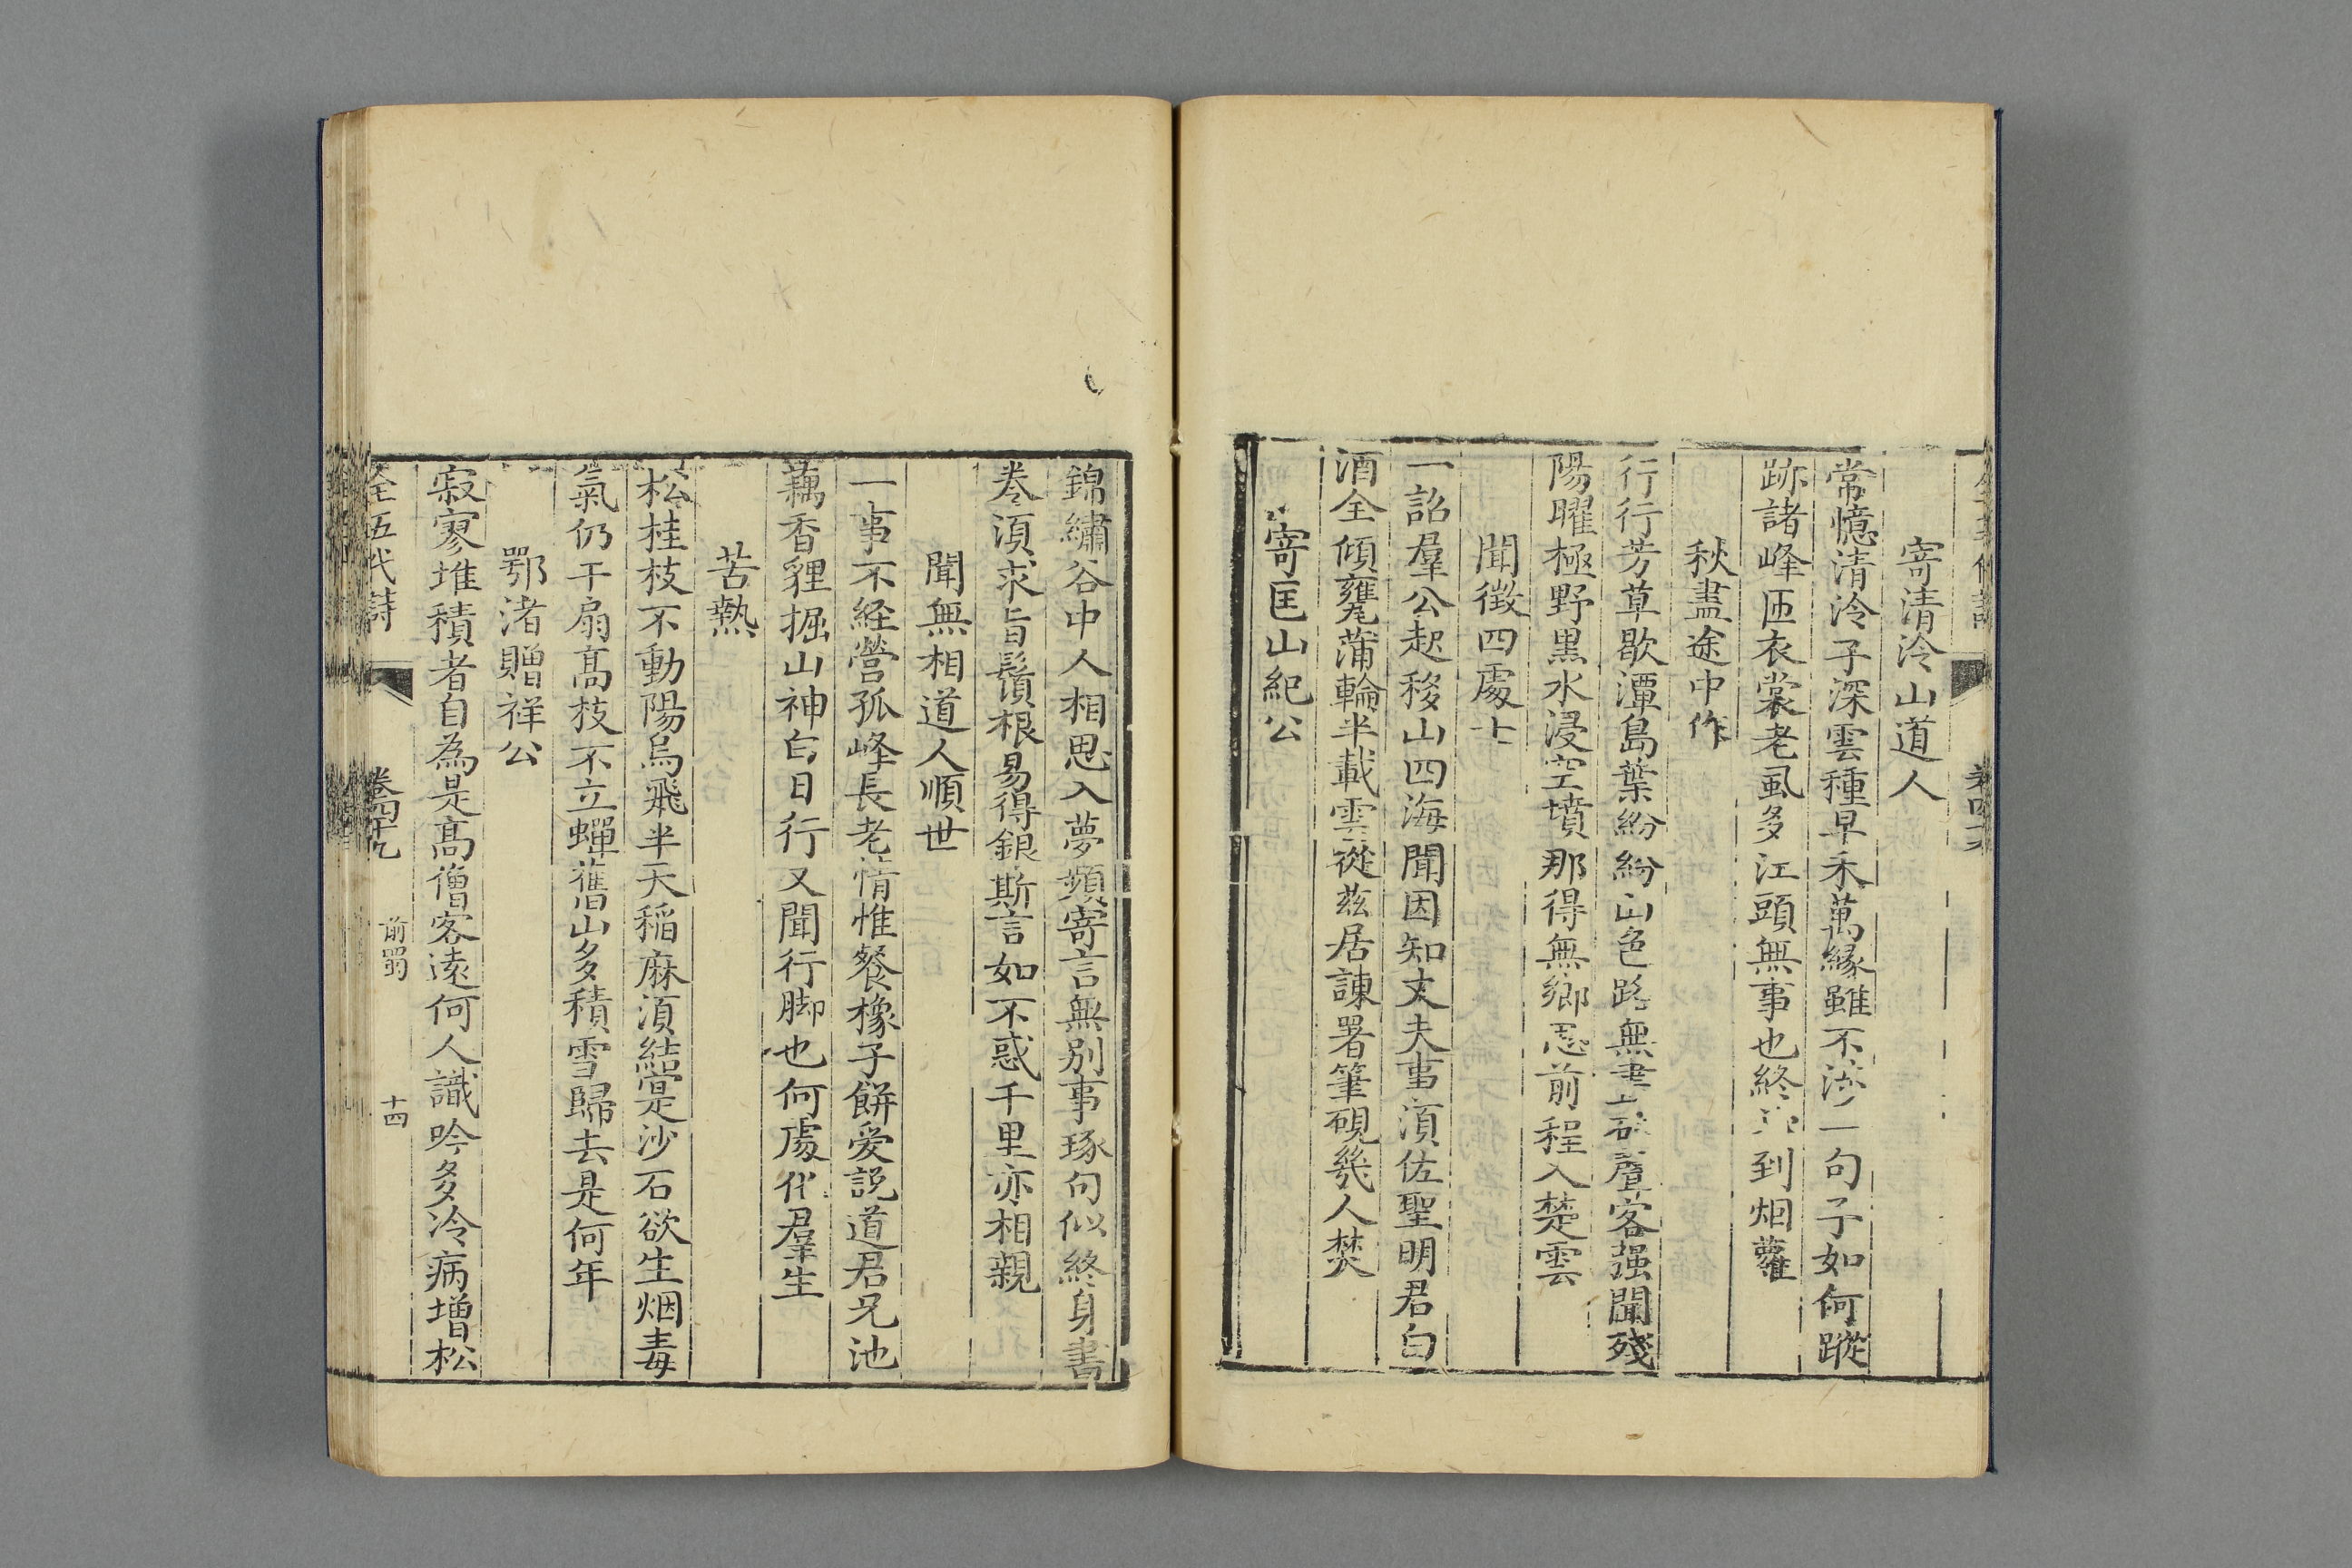 寄清泠山道人
常憶清泠子深雲種早禾萬緣雖不涉一句子如何蹤
跡諸峰匝衣裳老虱多江頭無事也終到烟蘿
秋盡途中作
行行芳草歇潭島葉紛紛山色路無盡砧聲客强聞殘
陽曜極野黒水浸空墳那得無鄉思前程入楚雲
聞徵四處士
一詔羣公起移山四海聞因知丈夫事湏佐聖明君白
酒全傾甕蒲輪半載雲從茲居諫署筆硯幾人焚
寄匡山紀公
錦繡谷中人相思入夢頻寄言無别事琢句似終身書
卷湏求旨鬚根易得銀斯言如不惑千里亦相親
聞無相道人順世
一事不経營孤峰長老情惟餐橡子餅爱説道君兄池
藕香狸掘山神白日行又聞行脚也何處化羣生
苦熱
松桂枝不動陽烏飛半天稲麻湏結實沙石欲生烟毒
氣仍干扇髙枝不立蟬舊山多積雪歸去是何年
鄂渚贈祥公
寂寥堆積者自為是髙僧客遠何人識吟多冷病增松
全五代詩 卷四十九 前蜀 十四